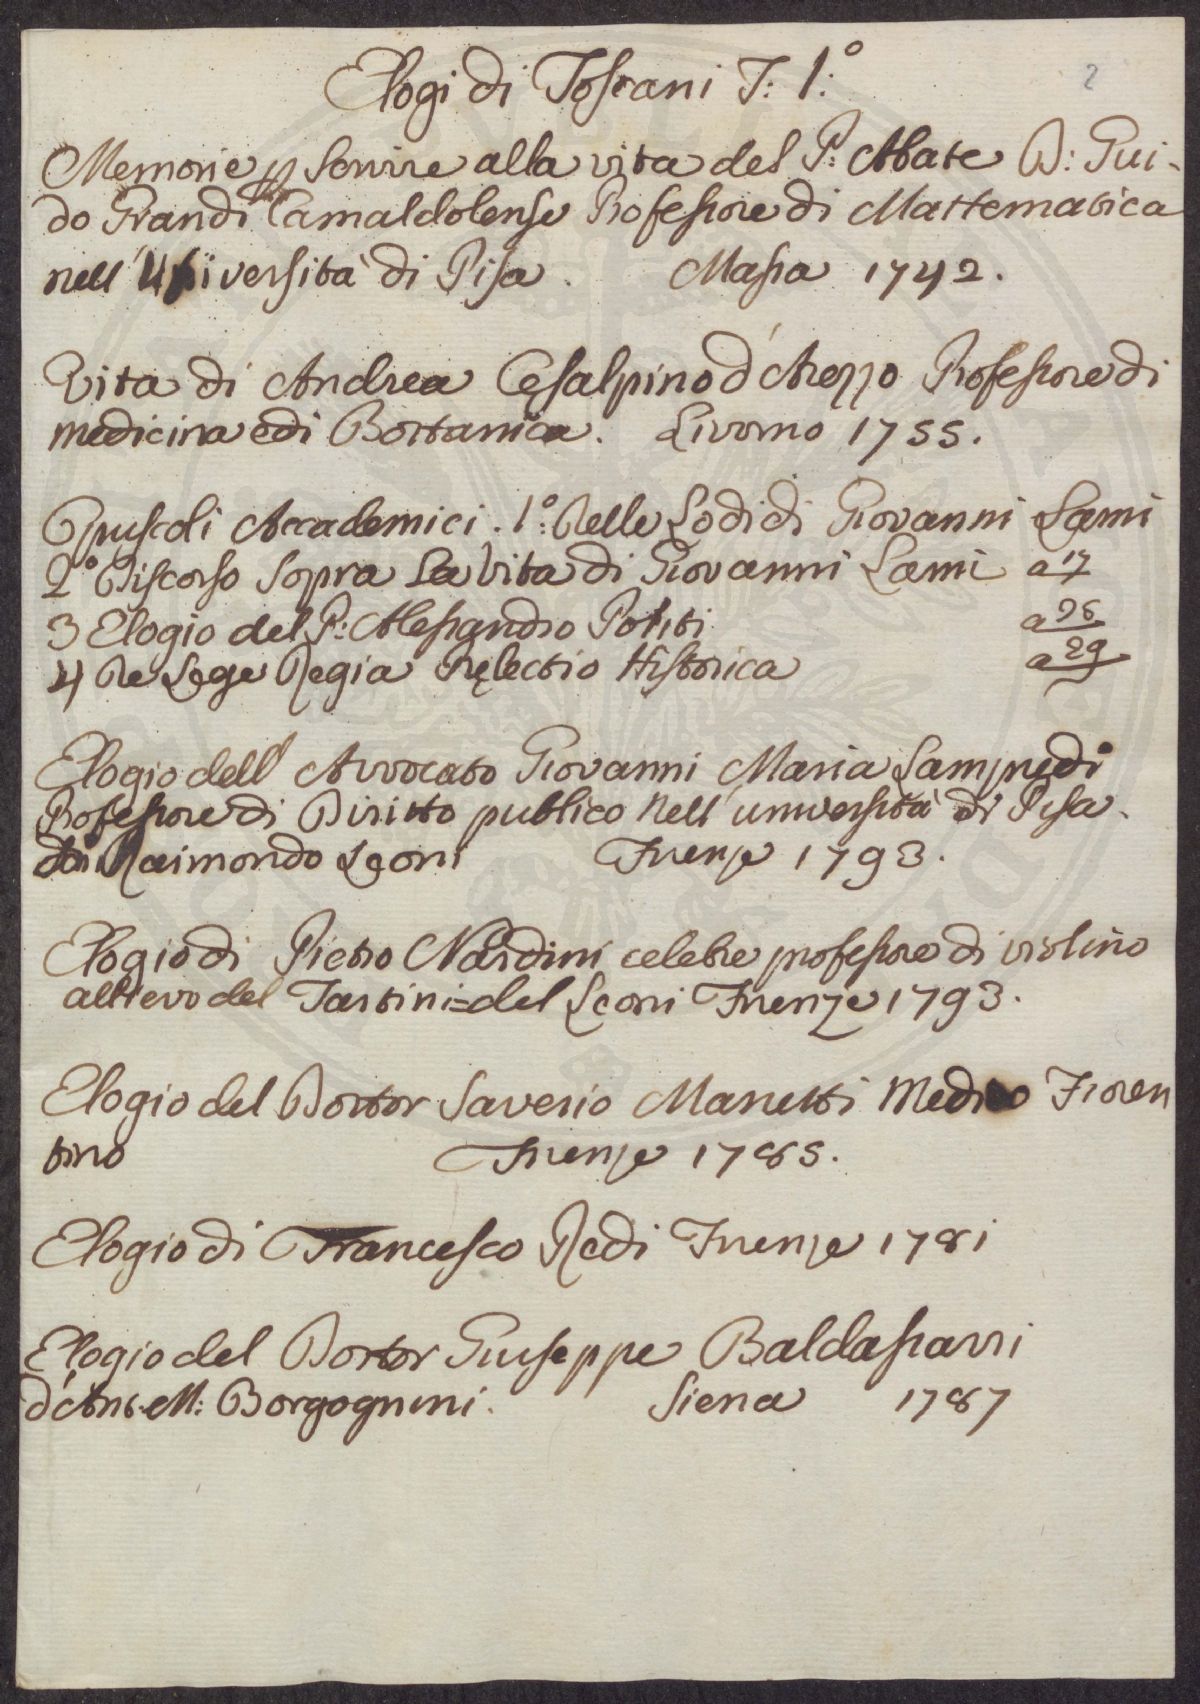 Elogi di Toscani T: 1:°
2
Memorie p servire alla vita del P: Abate D: Gui-
do Grandi Camaldolense Professore di Mattematica
nell'Università di Pisa. Massa 1742.
Vita di Andrea Cesalpino d'Arezzo Professore di
medicina e di Bottanica. Livorno 1755.
Opuscoli Accademici. 1°: Delle Lodi di Giovanni Lami
2° Discorso sopra La Vita di Giovanni Lami a 17
3 Elogio del P: Alessandro Politi a 26
4 De Lege Regia Prelectio Historica a 29
Elogio dell'Avvocato Giovanni Maria Lampredi
Professore di Diritto publico nell'università di Pisa.
da Raimondo Leoni Firenze 1793.
Elogio di Pietro Nardini celebre professore di violino
allievo del Tartini=del Leoni Firenze 1793.
Elogio del Dottor Saverio Manetti Medico Fioren
tino Firenze 1785.
Elogio di Francesco Redi Firenze 1781
Elogio del Dottor Giuseppe Baldassarri
d'Ant. M: Borgognini. Siena 1787